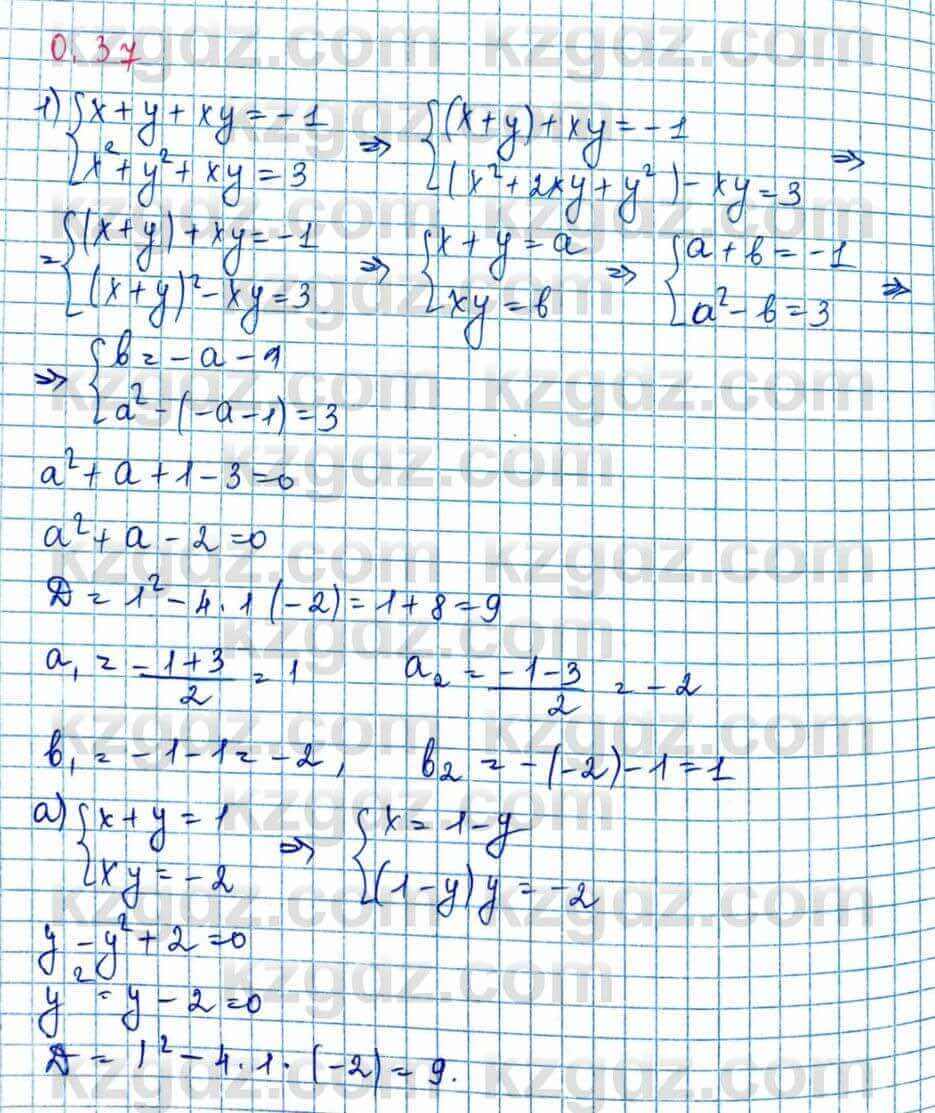 0.37
1) {x + y + xy = -1 ⇒ {(x+y) + xy = -1 ⇒
{x² + y² + xy = 3 {(x² + 2xy + y²) - xy = 3
= {(x+y) + xy = -1 ⇒ {x + y = a ⇒ {a + b = -1 ⇒
{(x+y)² - xy = 3 {xy = b {a² - b = 3
⇒ {b = -a - 1
{a² - (-a-1) = 3
a² + a + 1 - 3 = 0
a² + a - 2 = 0
D = 1² - 4·1(-2) = 1 + 8 = 9
a₁ = (-1+3)/2 = 1 a₂ = (-1-3)/2 = -2
b₁ = -1-1 = -2, b₂ = -(-2)-1 = 1
a) {x + y = 1 ⇒ {x = 1-y
{xy = -2 {(1-y)y = -2
y - y² + 2 = 0
y² = y - 2 = 0
D = 1² - 4·1·(-2) = 9.
kzgdz.com